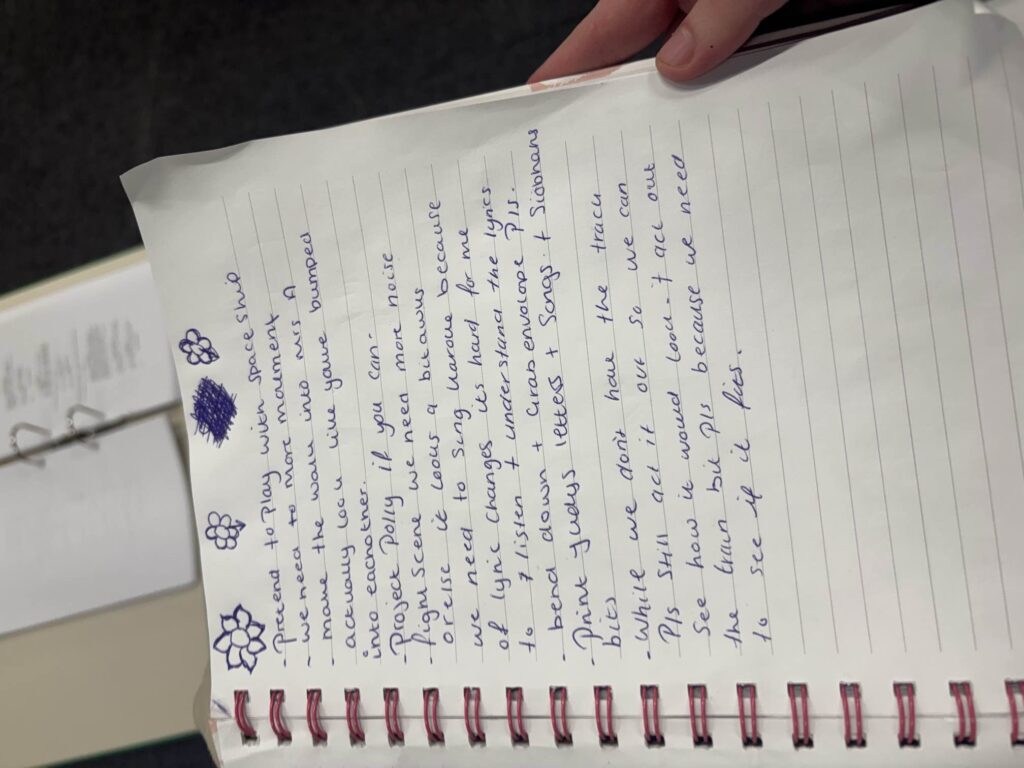 - Pretend to Play with space ship
- we need to more movement
- make the walk into mrs A
actually look like youve bumped
into eachother.
- Project Polly if you can.
- fight scene we need more noise
orelse it looks a bit awks
we need to sing karaoke because
of lyric changes its hard for me
to listen + understand the lyrics
- bend down + Grab envalope Pls.
- Print judys letters + Songs. + Siobhans
bits
- While we dont have the track
Pls still act it out so we can
See how it would look. + act out
the train bit Pls because we need
to see if it fits.